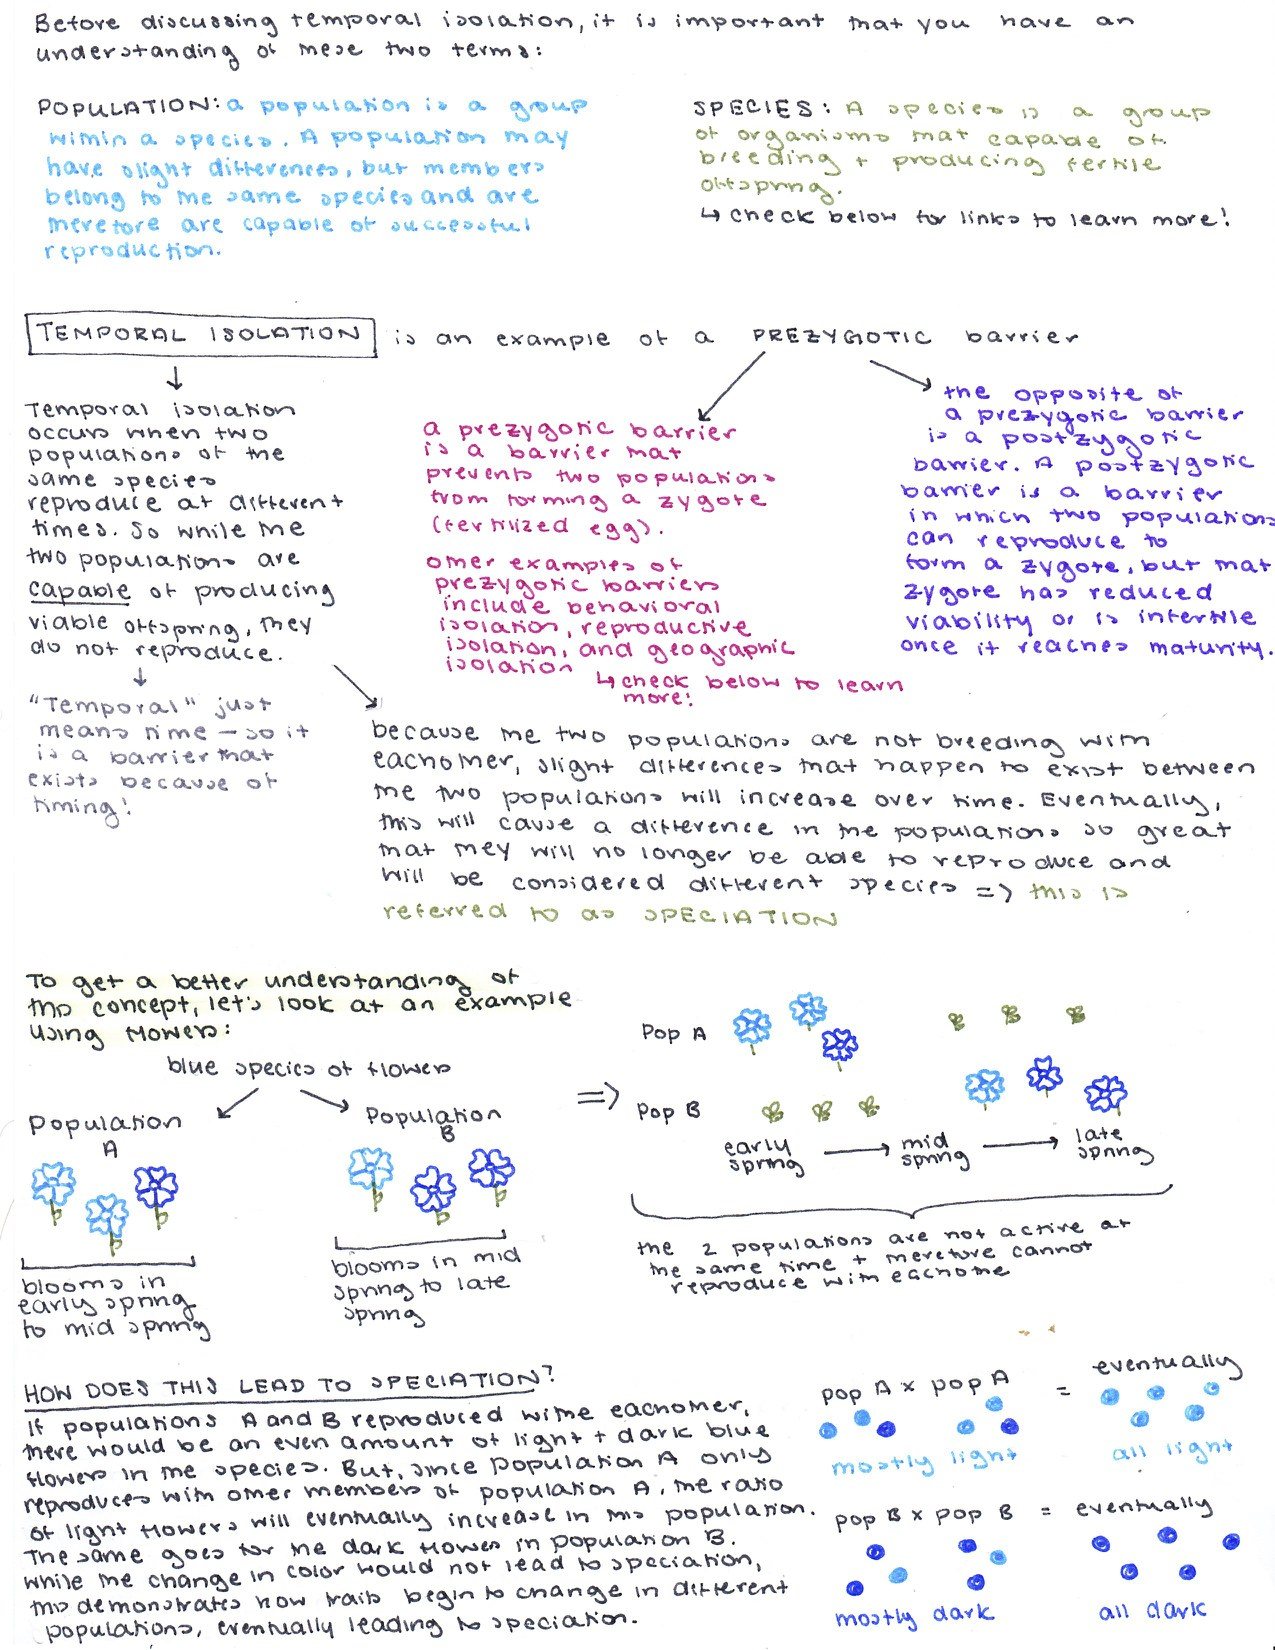 Before discussing temporal isolation, it is important that you have an
understanding of these two terms:
POPULATION: a population is a group
within a species. A population may
have slight differences, but members
belong to the same species and are
therefore are capable of successful
reproduction.
SPECIES: A species is a group
of organisms that capable of
breeding + producing fertile
offspring.
↳ check below for links to learn more!
TEMPORAL ISOLATION is an example of a PREZYGOTIC barrier
Temporal isolation
occurs when two
populations of the
same species
reproduce at different
times. So while the
two populations are
capable of producing
viable offspring, they
do not reproduce.
"Temporal" just
means time - so it
is a barrier that
exists because of
timing!
a prezygotic barrier
is a barrier that
prevents two populations
from forming a zygote
(fertilized egg).
other examples of
prezygotic barriers
include behavioral
isolation, reproductive
isolation, and geographic
isolation
↳ check below to learn
more!
the opposite of
a prezygotic barrier
is a postzygotic
barrier. A postzygotic
barrier is a barrier
in which two populations
can reproduce to
form a zygote, but that
zygote has reduced
viability or is infertile
once it reaches maturity.
because the two populations are not breeding with
eachother, slight differences that happen to exist between
the two populations will increase over time. Eventually,
this will cause a difference in the populations so great
that they will no longer be able to reproduce and
will be considered different species => this is
referred to as SPECIATION
To get a better understanding of
this concept, let's look at an example
using flowers:
blue species of flowers
Population
A
Population
B
blooms in
early spring
to mid spring
blooms in mid
spring to late
spring
=>
Pop A
Pop B
early
spring
mid
spring
late
spring
the 2 populations are not active at
the same time + therefore cannot
reproduce with eachothe
HOW DOES THIS LEAD TO SPECIATION?
If populations A and B reproduced withe eachother,
there would be an even amount of light + dark blue
flowers in the species. But, since population A only
reproduces with other members of population A, the ratio
of light flowers will eventually increase in this population.
The same goes for the dark flowes in population B.
While the change in color would not lead to speciation,
this demonstrates how traits begin to change in different
populations, eventually leading to speciation.
pop A x pop A = eventually
mostly light
all light
pop B x pop B = eventually
mostly dark
all dark